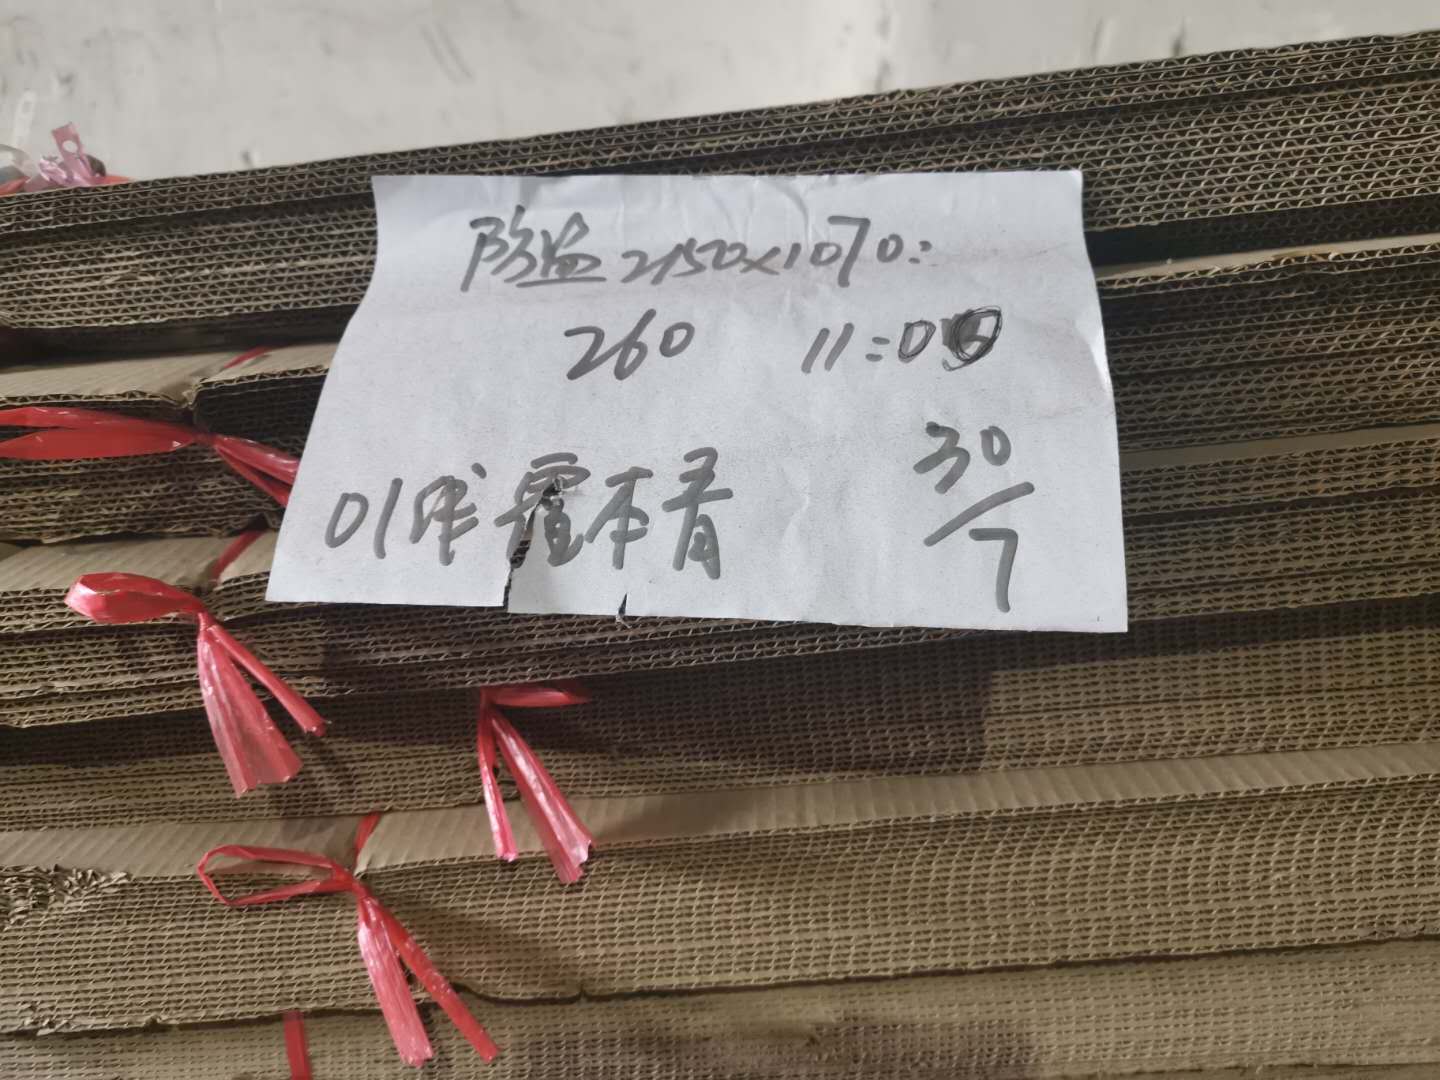 防盗2150×1070:
260 11:00
霍本青
30/7